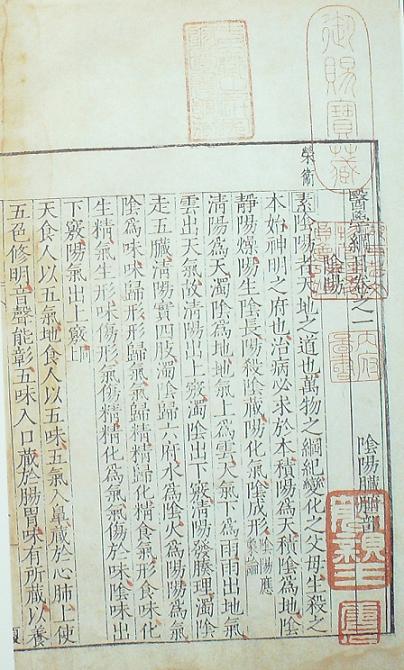 御賜寶藏
醫學綱目卷之一
陰陽臟腑部
陰陽
榮衛
素陰陽者天地之道也萬物之綱紀變化之父母生殺之
本始神明之府也治病必求於本積陽為天積陰為地陰
靜陽燥陽生陰長陽殺陰藏陽化氣陰成形陰陽應象論
清陽為天濁陰為地地氣上為雲天氣下為雨雨出地氣
雲出天氣故清陽出上竅濁陰出下竅清陽發腠理濁陰
走五臟清陽實四肢濁陰歸六府水為陰火為陽陽為氣
陰為味味歸形形歸氣氣歸精精歸化精食氣形食味化
生精氣生形味傷形氣傷精精化為氣氣傷於味陰味出
下竅陽氣出上竅
天食人以五氣地食人以五味五氣入鼻藏於心肺上使
五色修明音聲能彰五味入口藏於腸胃味有所藏以養